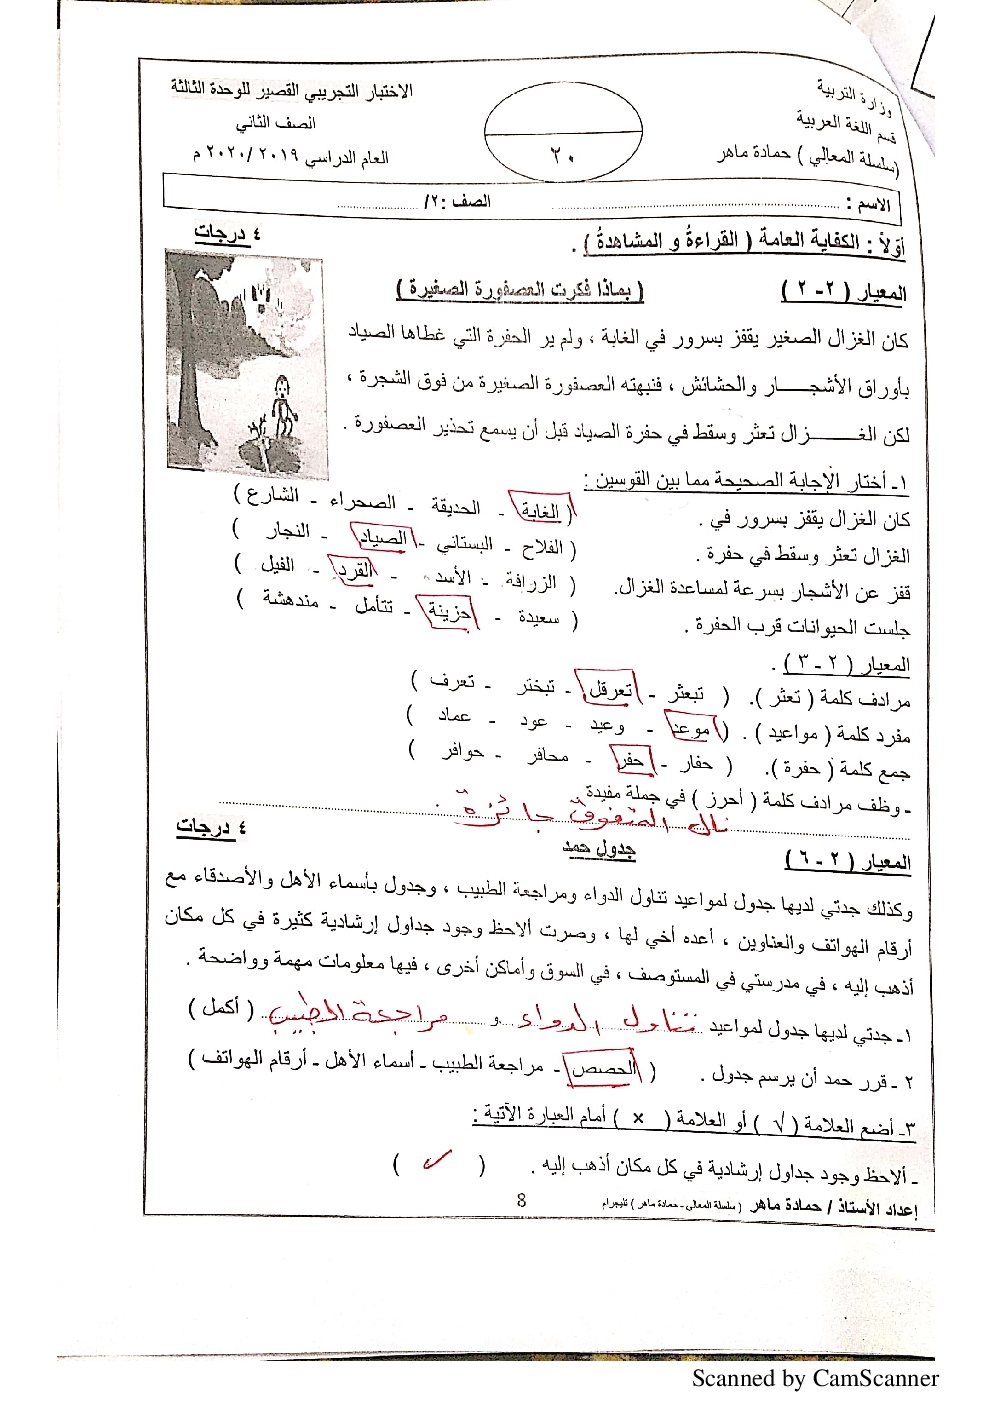 وزارة التربية
قسم اللغة العربية
(سلسلة المعالي ) حمادة ماهر
٢٠
الاختبار التجريبي القصير للوحدة الثالثة
الصف الثاني
العام الدراسي ٢٠١٩ /٢٠٢٠ م
الاسم : ........................ الصف :٢/ ................
أوّلاً : الكفاية العامة ( القراءةُ و المشاهدةُ ) . ٤ درجات
المعيار ( ٢- ٢ ) ( بماذا فكرت العصفورة الصغيرة )
كان الغزال الصغير يقفز بسرور في الغابة ، ولم ير الحفرة التي غطاها الصياد
بأوراق الأشجـــار والحشائش ، فنبهته العصفورة الصغيرة من فوق الشجرة ،
لكن الغـــــزال تعثر وسقط في حفرة الصياد قبل أن يسمع تحذير العصفورة .
١- أختار الإجابة الصحيحة مما بين القوسين :
كان الغزال يقفز بسرور في . ( الغابة - الحديقة - الصحراء - الشارع )
الغزال تعثر وسقط في حفرة . ( الفلاح - البستاني - الصياد - النجار )
قفز عن الأشجار بسرعة لمساعدة الغزال. ( الزرافة - الأسد - القرد - الفيل )
جلست الحيوانات قرب الحفرة . ( سعيدة - حزينة - تتأمل - مندهشة )
المعيار ( ٢ - ٣ ) .
مرادف كلمة ( تعثر ). ( تبعثر - تعرقل - تبختر - تعرف )
مفرد كلمة ( مواعيد ) . ( موعد - وعيد - عود - عماد )
جمع كلمة ( حفرة ). ( حفار - حفر - محافر - حوافر )
- وظف مرادف كلمة ( أحرز ) في جملة مفيدة
نال المتفوق جائزة .
المعيار ( ٢ - ٦ ) جدول حمد ٤ درجات
وكذلك جدتي لديها جدول لمواعيد تناول الدواء ومراجعة الطبيب ، وجدول بأسماء الأهل والأصدقاء مع
أرقام الهواتف والعناوين ، أعده أخي لها ، وصرت ألاحظ وجود جداول إرشادية كثيرة في كل مكان
أذهب إليه ، في مدرستي في المستوصف ، في السوق وأماكن أخرى ، فيها معلومات مهمة وواضحة .
١- جدتي لديها جدول لمواعيد تناول الدواء و مراجعة الطبيب ( أكمل )
٢ - قرر حمد أن يرسم جدول . ( الحصص - مراجعة الطبيب - أسماء الأهل - أرقام الهواتف )
٣- أضع العلامة ( √ ) أو العلامة ( × ) أمام العبارة الآتية :
- ألاحظ وجود جداول إرشادية في كل مكان أذهب إليه . ( ✓ )
إعداد الأستاذ / حمادة ماهر ( سلسلة المعالي - حمادة ماهر ) تليجرام 8
Scanned by CamScanner